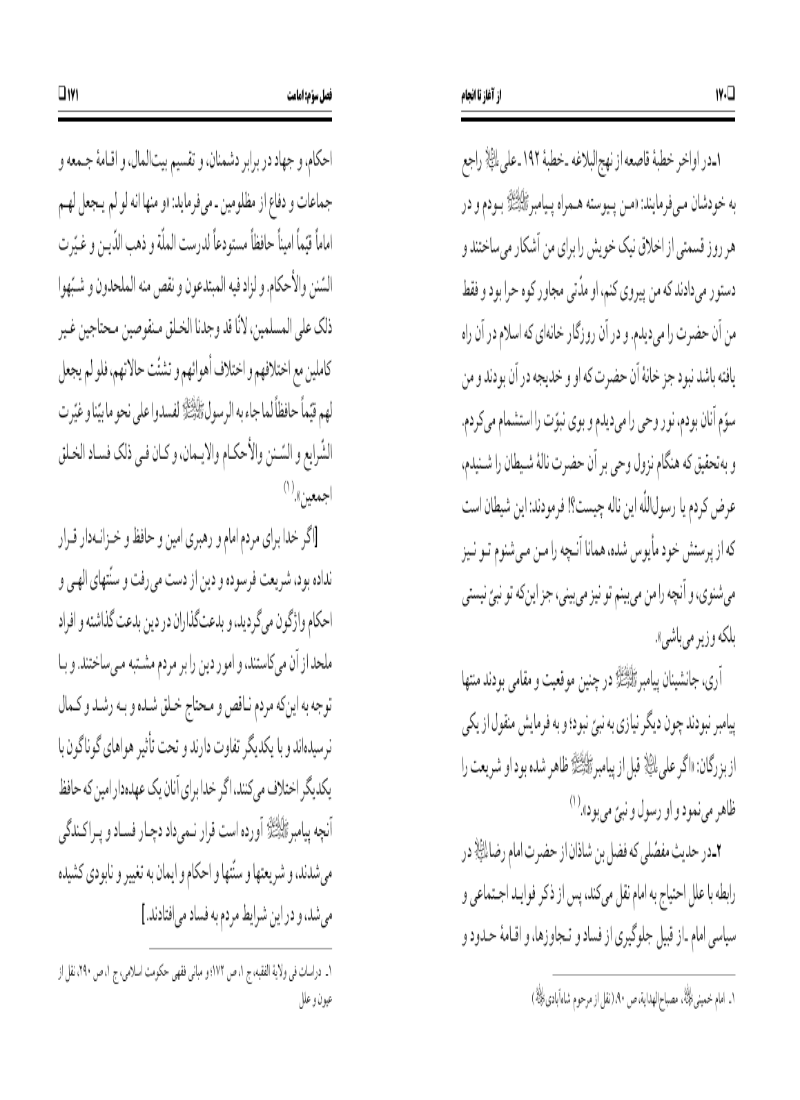 ❑۱۷۰ از آغاز تا انجام
۱ـ در اواخر خطبهٔ قاصعه از نهج‌البلاغه ـ خطبهٔ ۱۹۲ ـ علی راجع
به خودشان می‌فرمایند: «من پیوسته همراه پیامبرﷺ بودم و در
هر روز قسمتی از اخلاق نیک خویش را برای من آشکار می‌ساختند و
دستور می‌دادند که من پیروی کنم، او مدّتی مجاور کوه حرا بود و فقط
من آن حضرت را می‌دیدم. و در آن روزگار خانه‌ای که اسلام در آن راه
یافته باشد نبود جز خانهٔ آن حضرت که او و خدیجه در آن بودند و من
سوّم آنان بودم، نور وحی را می‌دیدم و بوی نبوّت را استشمام می‌کردم.
و به‌تحقیق که هنگام نزول وحی بر آن حضرت نالهٔ شیطان را شنیدم،
عرض کردم یا رسول‌اللّه این ناله چیست؟! فرمودند: این شیطان است
که از پرستش خود مأیوس شده، همانا آنچه را من می‌شنوم تو نیز
می‌شنوی، و آنچه را من می‌بینم تو نیز می‌بینی، جز این‌که تو نبیّ نیستی
بلکه وزیر می‌باشی».
آری، جانشینان پیامبرﷺ در چنین موقعیت و مقامی بودند منتها
پیامبر نبودند چون دیگر نیازی به نبیّ نبود؛ و به فرمایش منقول از یکی
از بزرگان: «اگر علی قبل از پیامبرﷺ ظاهر شده بود او شریعت را
ظاهر می‌نمود و او رسول و نبیّ می‌بود».(۱)
۲ـ در حدیث مفصّلی که فضل بن شاذان از حضرت امام رضا در
رابطه با علل احتیاج به امام نقل می‌کند، پس از ذکر فواید اجتماعی و
سیاسی امام ـ از قبیل جلوگیری از فساد و تجاوزها، و اقامهٔ حدود و
۱ـ امام خمینی، مصباح‌الهدایة، ص ۹۰، (نقل از مرحوم شاه‌آبادی)
فصل سوّم: امامت ۱۷۱❑
احکام، و جهاد در برابر دشمنان، و تقسیم بیت‌المال، و اقامهٔ جمعه و
جماعات و دفاع از مظلومین ـ می‌فرماید: «و منها انه لو لم یجعل لهم
اماماً قیّماً امیناً حافظاً مستودعاً لدرست الملّة و ذهب الدّین و غیّرت
السّنن والأحکام. و لزاد فیه المبتدعون و نقص منه الملحدون و شبّهوا
ذلک علی المسلمین، لانّا قد وجدنا الخلق منقوصین محتاجین غیر
کاملین مع اختلافهم و اختلاف أهوائهم و تشتّت حالاتهم، فلو لم یجعل
لهم قیّماً حافظاً لما جاء به الرسولﷺ لفسدوا علی نحو ما بیّنا و غیّرت
الشّرایع و السّنن والأحکام والایمان، و کان فی ذلک فساد الخلق
اجمعین».(۱)
[اگر خدا برای مردم امام و رهبری امین و حافظ و خزانه‌دار قرار
نداده بود، شریعت فرسوده و دین از دست می‌رفت و سنّتهای الهی و
احکام واژگون می‌گردید، و بدعت‌گذاران در دین بدعت گذاشته و افراد
ملحد از آن می‌کاستند، و امور دین را بر مردم مشتبه می‌ساختند. و با
توجه به این‌که مردم ناقص و محتاج خلق شده و به رشد و کمال
نرسیده‌اند و با یکدیگر تفاوت دارند و تحت تأثیر هواهای گوناگون با
یکدیگر اختلاف می‌کنند، اگر خدا برای آنان یک عهده‌دار امین که حافظ
آنچه پیامبرﷺ آورده است قرار نمی‌داد دچار فساد و پراکندگی
می‌شدند، و شریعتها و سنّتها و احکام و ایمان به تغییر و نابودی کشیده
می‌شد، و در این شرایط مردم به فساد می‌افتادند.]
۱ـ دراسات فی ولایة الفقیه، ج ۱، ص ۱۷۲؛ و مبانی فقهی حکومت اسلامی، ج ۱، ص ۲۹۰، نقل از
عیون و علل